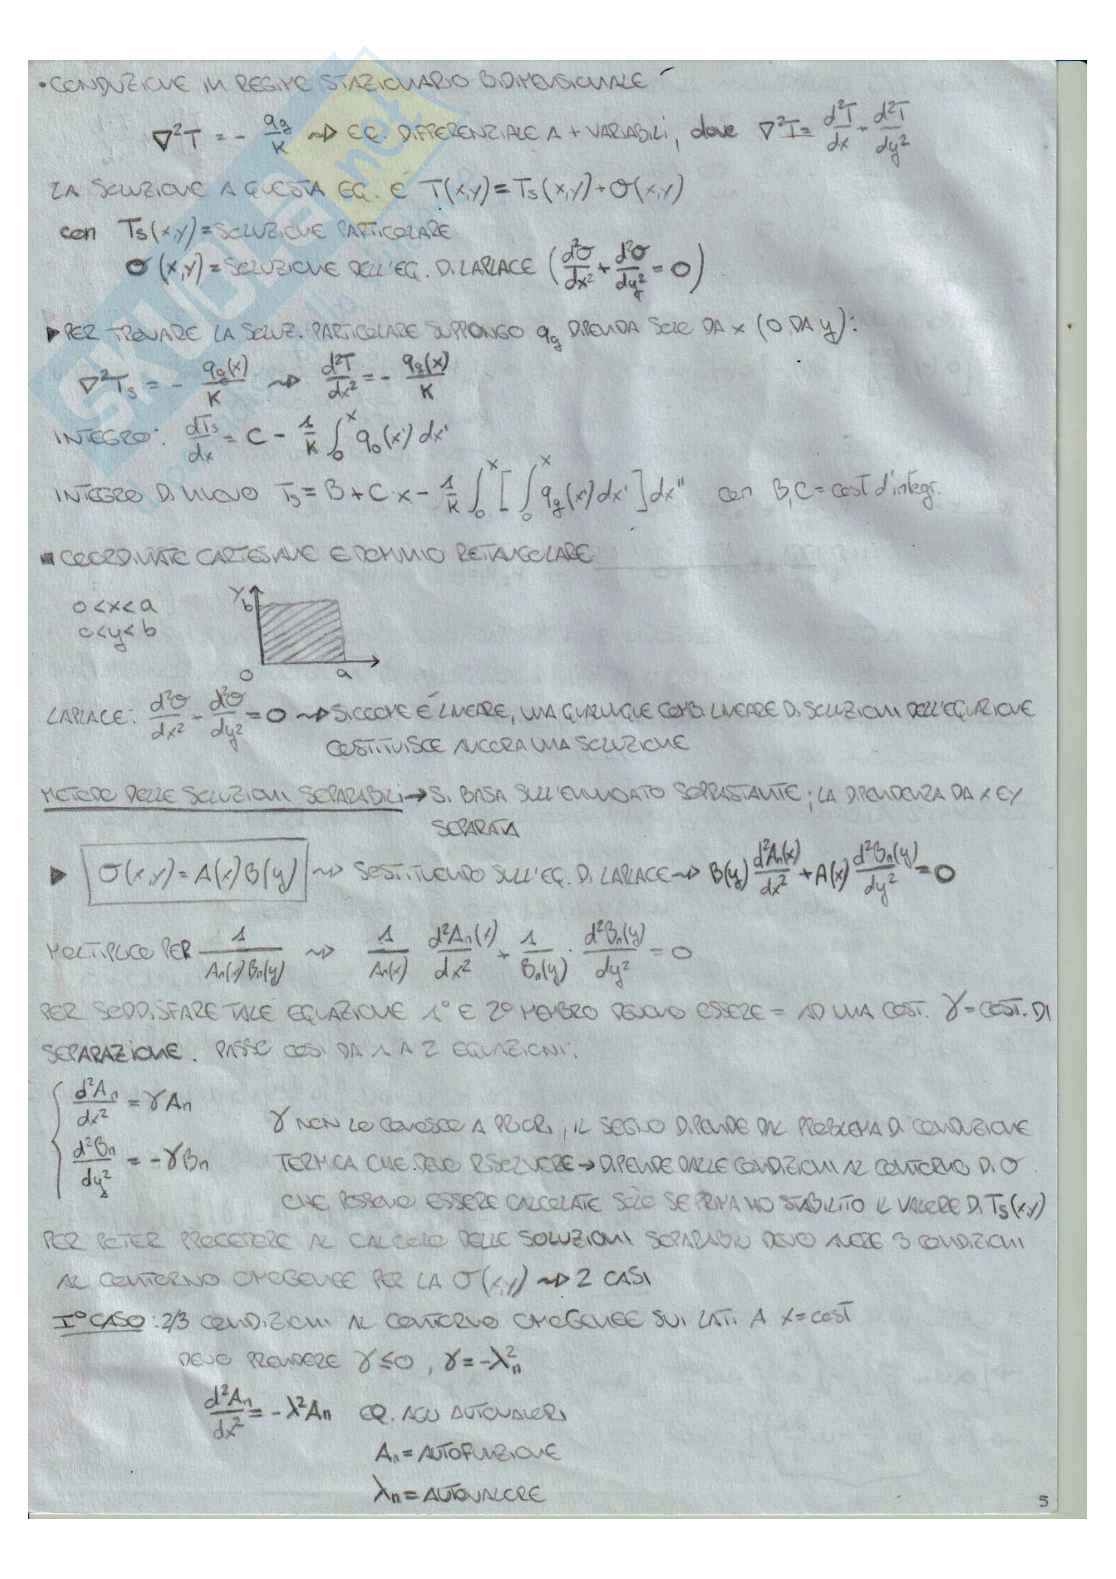 • CONDUZIONE IN REGIME STAZIONARIO BIDIMENSIONALE
∇²T = - qg/K ⇝ EQ. DIFFERENZIALE A + VARIABILI, dove ∇²T = d²T/dx - d²T/dy²
LA SOLUZIONE A QUESTA EQ. È T(x,y) = Ts(x,y) + σ(x,y)
con Ts(x,y) = SOLUZIONE PARTICOLARE
σ(x,y) = SOLUZIONE DELL'EQ. DI LAPLACE (d²σ/dx² + d²σ/dy² = 0)
▶ PER TROVARE LA SOLUZ. PARTICOLARE SUPPONGO qg DIPENDA SOLO DA x (O DA y):
∇²Ts = - qg(x)/K ⇝ d²T/dx² = - qg(x)/K
INTEGRO: dTs/dx = C - 1/K ∫₀ˣ q₀(x') dx'
INTEGRO DI NUOVO Ts = B + C·x - 1/K ∫₀ˣ [ ∫₀ˣ qg(x') dx' ] dx'' con B,C = cost d'integr.
■ COORDINATE CARTESIANE E DOMINIO RETANGOLARE
0 < x < a
0 < y < b
y
b
0 a
LAPLACE: d²σ/dx² - d²σ/dy² = 0 ⇝ SICCOME È LINEARE, UNA QUALUNQUE COMB. LINEARE DI SOLUZIONI DELL'EQUAZIONE
COSTITUISCE ANCORA UNA SOLUZIONE
METODO DELLE SOLUZIONI SEPARABILI → SI BASA SULL'ENUNCIATO SOPRASTANTE; LA DIPENDENZA DA X E Y
SEPARATA
▶ σ(x,y) = A(x) B(y) ⇝ SOSTITUENDO SULL'EQ. DI LAPLACE ⇝ B(y) d²An(x)/dx² + A(x) d²Bn(y)/dy² = 0
MOLTIPLICO PER 1/An(x)Bn(y) ⇝ 1/An(x) d²An(x)/dx² + 1/Bn(y) · d²Bn(y)/dy² = 0
PER SODDISFARE TALE EQUAZIONE 1° E 2° MEMBRO DEVONO ESSERE = AD UNA COST. γ = COST. DI
SEPARAZIONE. PASSO COSÌ DA 1 A 2 EQUAZIONI:
d²An/dx² = γAn
d²Bn/dy² = -γBn
γ NON LO CONOSCO A PRIORI, IL SEGNO DIPENDE DAL PROBLEMA DI CONDUZIONE
TERMICA CHE DEVO RISOLVERE → DIPENDE DALLE CONDIZIONI AL CONTORNO DI σ
CHE POSSONO ESSERE CALCOLATE SOLO SE PRIMA HO STABILITO IL VALORE DI Ts(x,y)
PER POTER PROCEDERE AL CALCOLO DELLE SOLUZIONI SEPARABILI DEVO AVERE 3 CONDIZIONI
AL CONTORNO OMOGENEE PER LA σ(x,y) ⇝ 2 CASI
I° CASO: 2/3 CONDIZIONI AL CONTORNO OMOGENEE SUI LATI A X = COST
DEVO PRENDERE γ ≤ 0, γ = -λn²
d²An/dx² = -λ²An EQ. AGLI AUTOVALORI
An = AUTOFUNZIONE
λn = AUTOVALORE
5